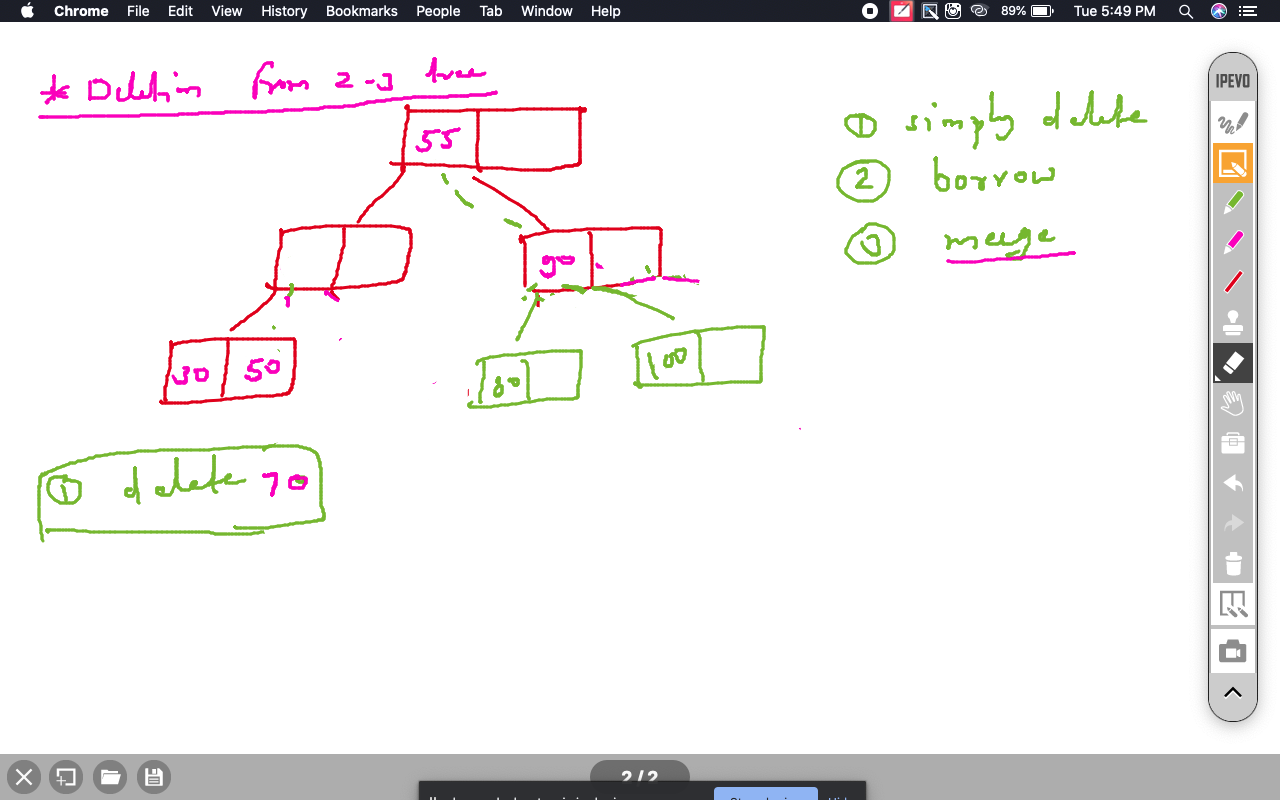 Chrome File Edit View History Bookmarks People Tab Window Help 89% Tue 5:49 PM
* Deletion from 2-3 tree
55
90
30 50
80
100
① simply delete
② borrow
③ merge
① delete 70
IPEVO
2 / 2